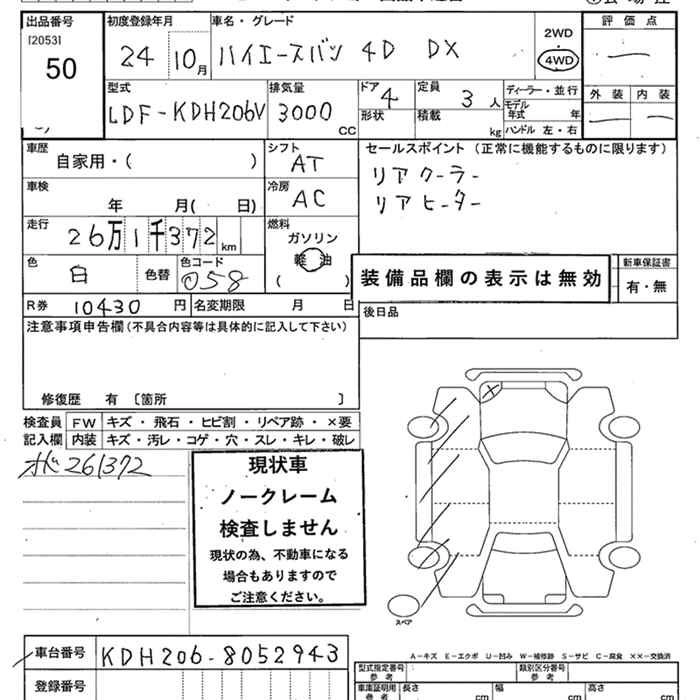 出品番号
[2053]
50
初度登録年月
24 10月
車名・グレード
ハイエースバン 4D DX
2WD
4WD
評価点
外装 内装
型式
LDF-KDH206V
排気量
3000 CC
ドア 4
形状
定員 3 人
積載 kg
ディーラー・並行
モデル年式 年
ハンドル 左・右
車歴
自家用・( )
シフト
AT
セールスポイント(正常に機能するものに限ります)
リアクーラー
リアヒーター
車検
年 月( 日)
冷房
AC
走行
26万1千372 km
燃料
ガソリン
軽油
( )
色
白 色替
色コード
058
装備品欄の表示は無効
新車保証書
有・無
R券 10430円
名変期限 月 日
後日品
注意事項申告欄(不具合内容等は具体的に記入して下さい)
修復歴 有 〔箇所 〕
検査員記入欄
FW キズ・飛石・ヒビ割・リペア跡・×要
内装 キズ・汚レ・コゲ・穴・スレ・キレ・破レ
261372
現状車
ノークレーム
検査しません
現状の為、不動車になる
場合もありますので
ご注意ください。
スペア
A-キズ E-エクボ U-凹み W-補修跡 S-サビ C-腐食 ××-交換済
車台番号 KDH206-8052943
登録番号
型式指定番号
参考
類別区分番号
参考
車庫証明用
参考
長さ cm
幅 cm
高さ cm